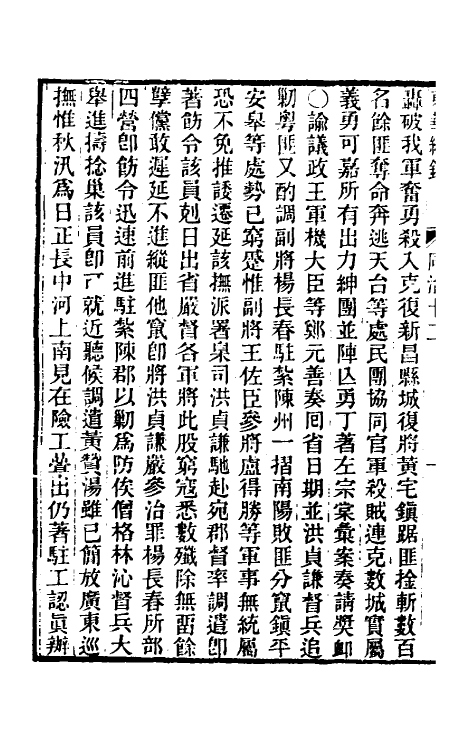 轟破我軍奮勇殺入克復新昌縣城復將黃宅鎮踞匪拴斬數百
名餘匪奪命奔逃天台等處民團協同官軍殺賊連克數城實屬
義勇可嘉所有出力紳團並陣亾勇丁著左宗棠彙案奏請獎卹
〇諭議政王軍機大臣等鄭元善奏囘省日期並洪貞謙督兵追
剿粵匪又酌調副將楊長春駐紮陳州一摺南陽敗匪分竄鎮平
安皋等處勢已窮蹙惟副將王佐臣參將盧得勝等軍事無統屬
恐不免推諉遷延該撫派署臬司洪貞謙馳赴宛郡督率調遣卽
著飭令該員剋日出省嚴督各軍將此股窮寇悉數殲除無畱餘
孽儻敢遲延不進縱匪他竄卽將洪貞謙嚴參治罪楊長春所部
四營卽飭令迅速前進駐紮陳郡以剿爲防俟僧格林沁督兵大
舉進擣捻巢該員卽可就近聽候調遣黃贊湯雖已簡放廣東巡
撫惟秋汛爲日正長中河上南見在險工疊出仍著駐工認眞辦